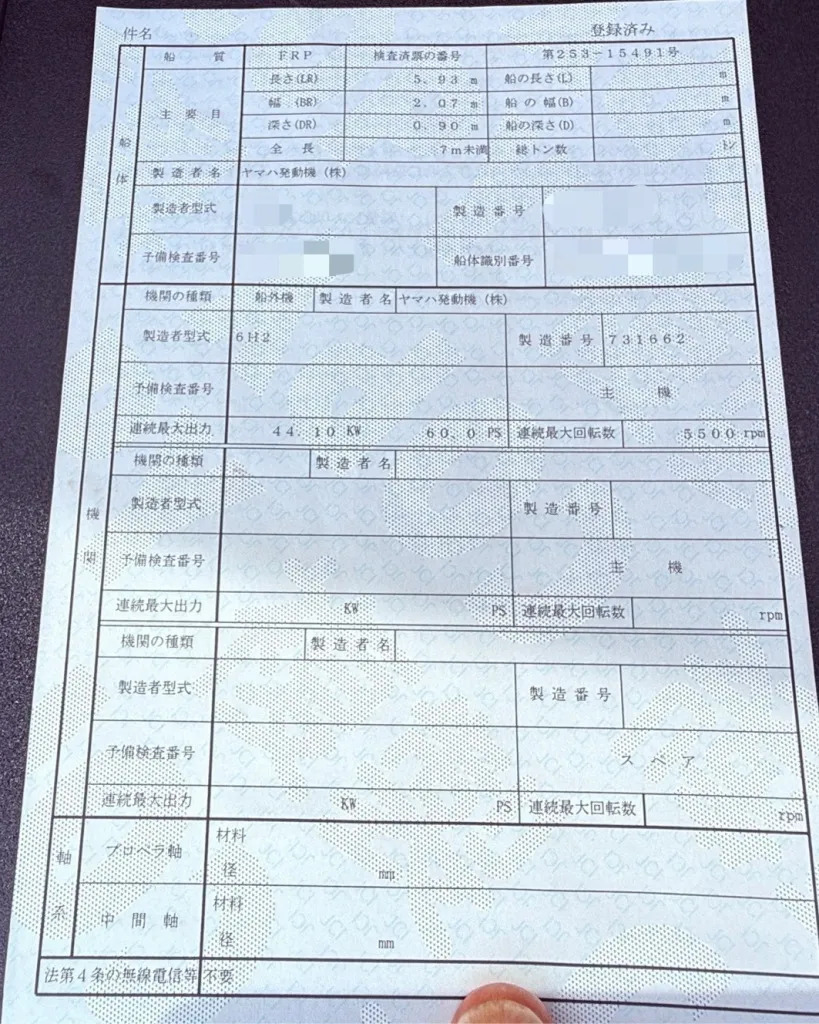 件名 登録済み
船質 FRP 検査済票の番号 第253-15491号
船体
主要目
長さ(LR) 5.93 m 船の長さ(L) m
幅(BR) 2.07 m 船の幅(B) m
深さ(DR) 0.90 m 船の深さ(D) m
全長 7m未満 総トン数 トン
製造者名 ヤマハ発動機(株)
製造者型式 製造番号
予備検査番号 船体識別番号
機関
機関の種類 船外機 製造者名 ヤマハ発動機(株)
製造者型式 6H2 製造番号 731662
予備検査番号 主機
連続最大出力 44.10 KW 60.0 PS 連続最大回転数 5500 rpm
機関の種類 製造者名
製造者型式 製造番号
予備検査番号 主機
連続最大出力 KW PS 連続最大回転数 rpm
機関の種類 製造者名
製造者型式 製造番号
予備検査番号 スペア
連続最大出力 KW PS 連続最大回転数 rpm
軸系
プロペラ軸 材料
径 mm
中間軸 材料
径 mm
法第4条の無線電信等 不要